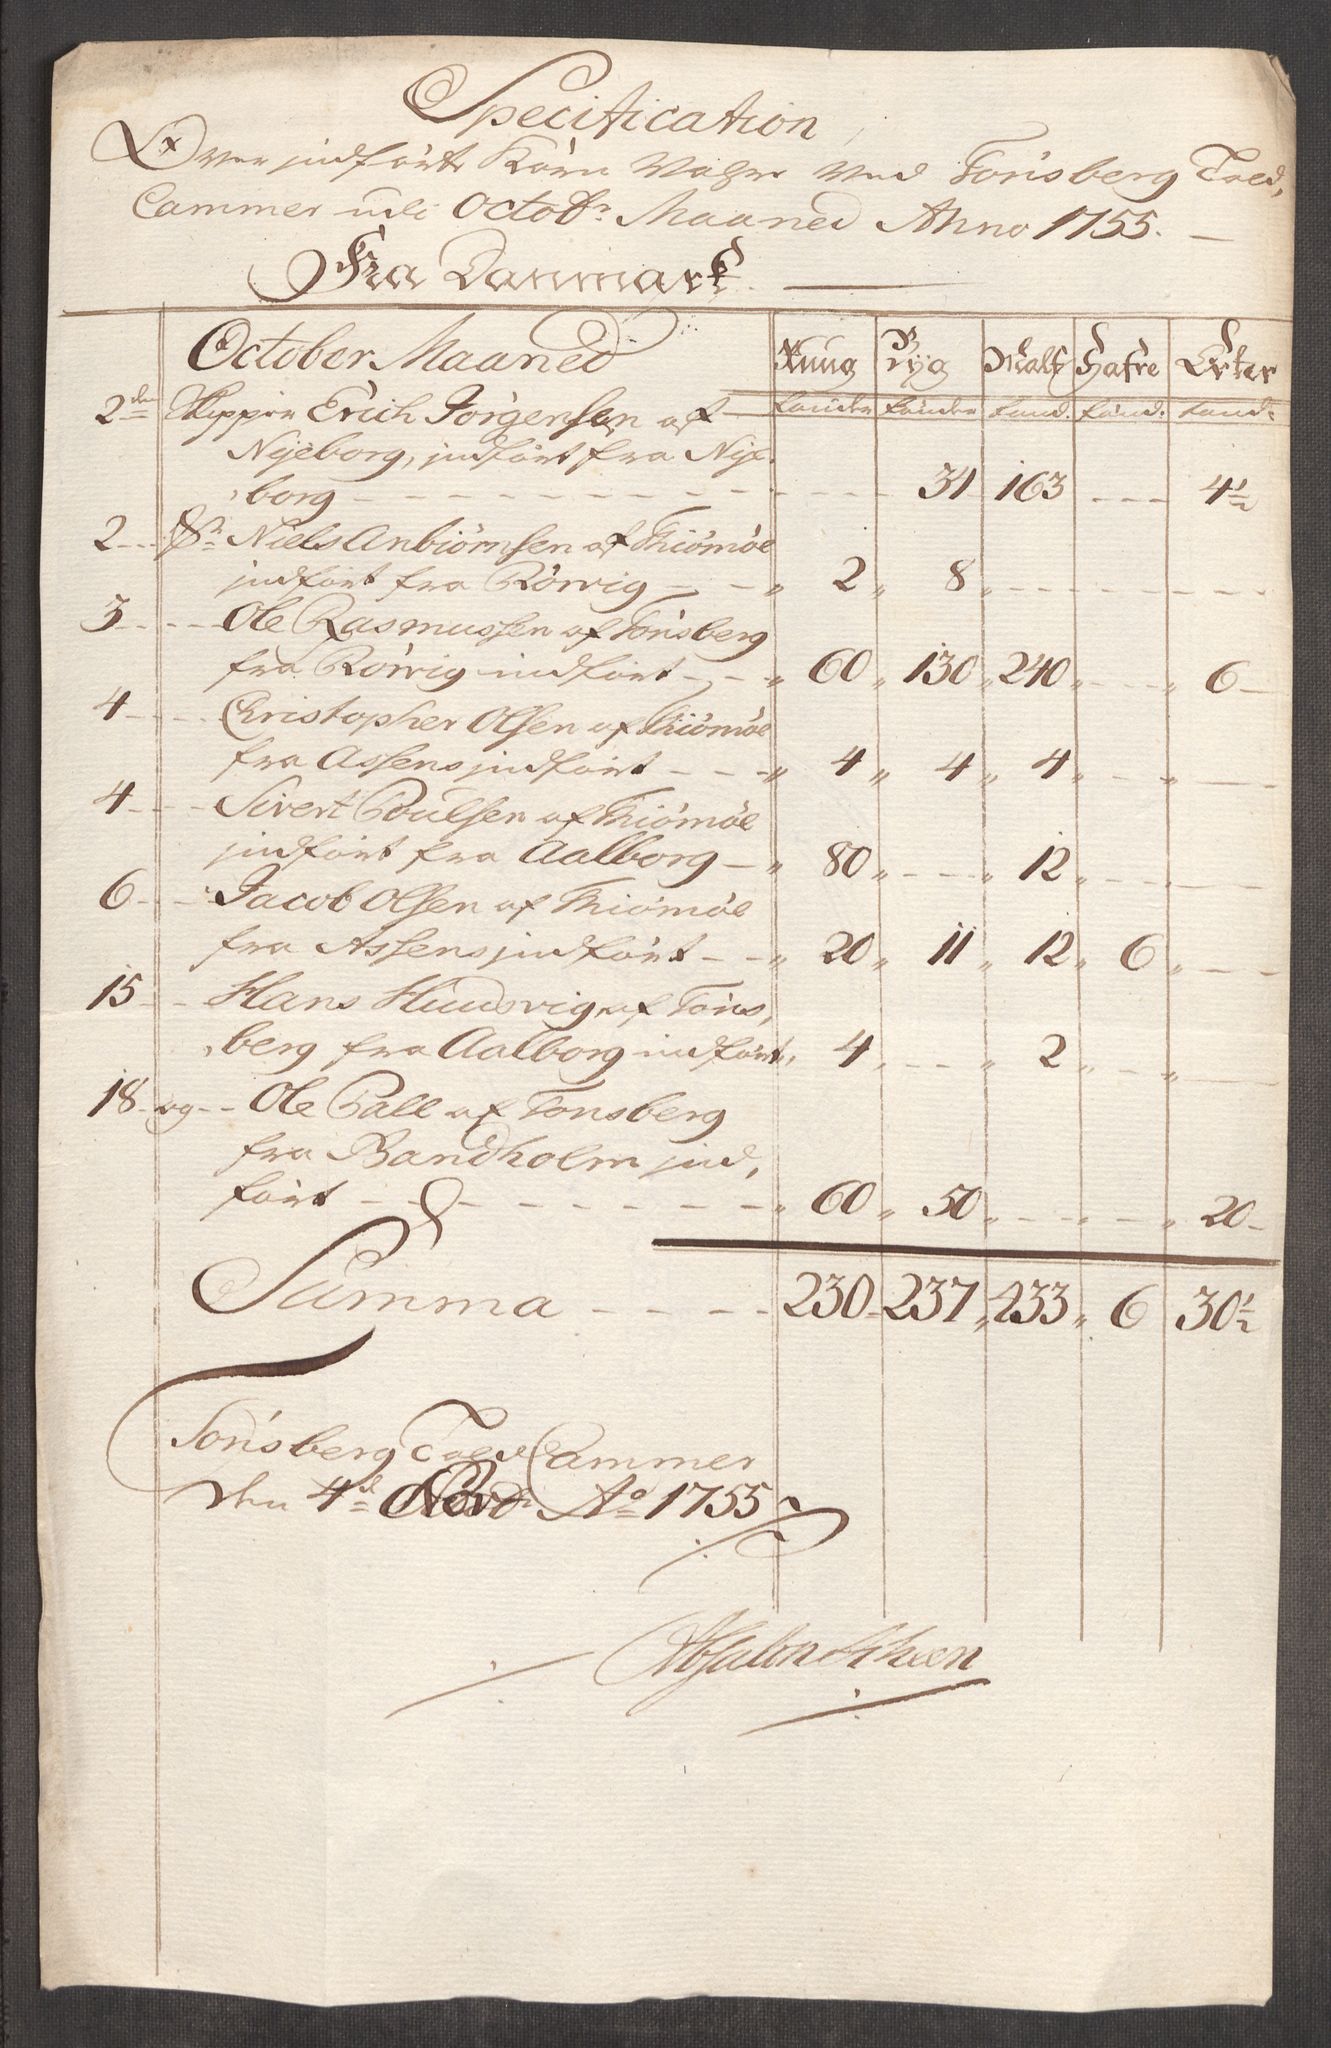 Specification
Over indførte Korn Vahre ved Tønsberg Told,
Cammer udi Octobr Maaned Anno 1755.
Fra Danmark
October Maaned Rüug Byg Malt Hafre Erter
tønder tønder tønd. tønd. tønd.
2den Skipper Erich Jørgensen af
Nyeborg, indført fra Nye,
borg 34 163 4½
2 Sr Niels Anbiørnsen af Thiømøe
indført fra Rørvig „ 2 „ 8 „
3 Ole Rasmussen af Tønsberg
fra Rørvig indført „ 60 „ 130 „ 240 „ 6
4 Christopher Olsen af Thiømøe
fra Assens indført „ 4 „ 4 „ 4 „ „
4 Sivert Poulsen af Thiømøe
indført fra Aalborg „ 80 „ „ 12 „ „
6 Jacob Olsen af Thiømøe
fra Assens indført „ 20 „ 11 „ 12 „ 6 „
15 Hans Hüüsvig af Tøns,
berg fra Aalborg indført „ 4 „ „ 2 „ „
18 og Ole Pall af Tønsberg
fra Bandholm ind,
ført „ 60 „ 50 „ „ „ 20
Summa 230 237 „ 433 „ 6 30½
Tønsberg Told Cammer
den 4de Novbr Ao 1755
Absalon